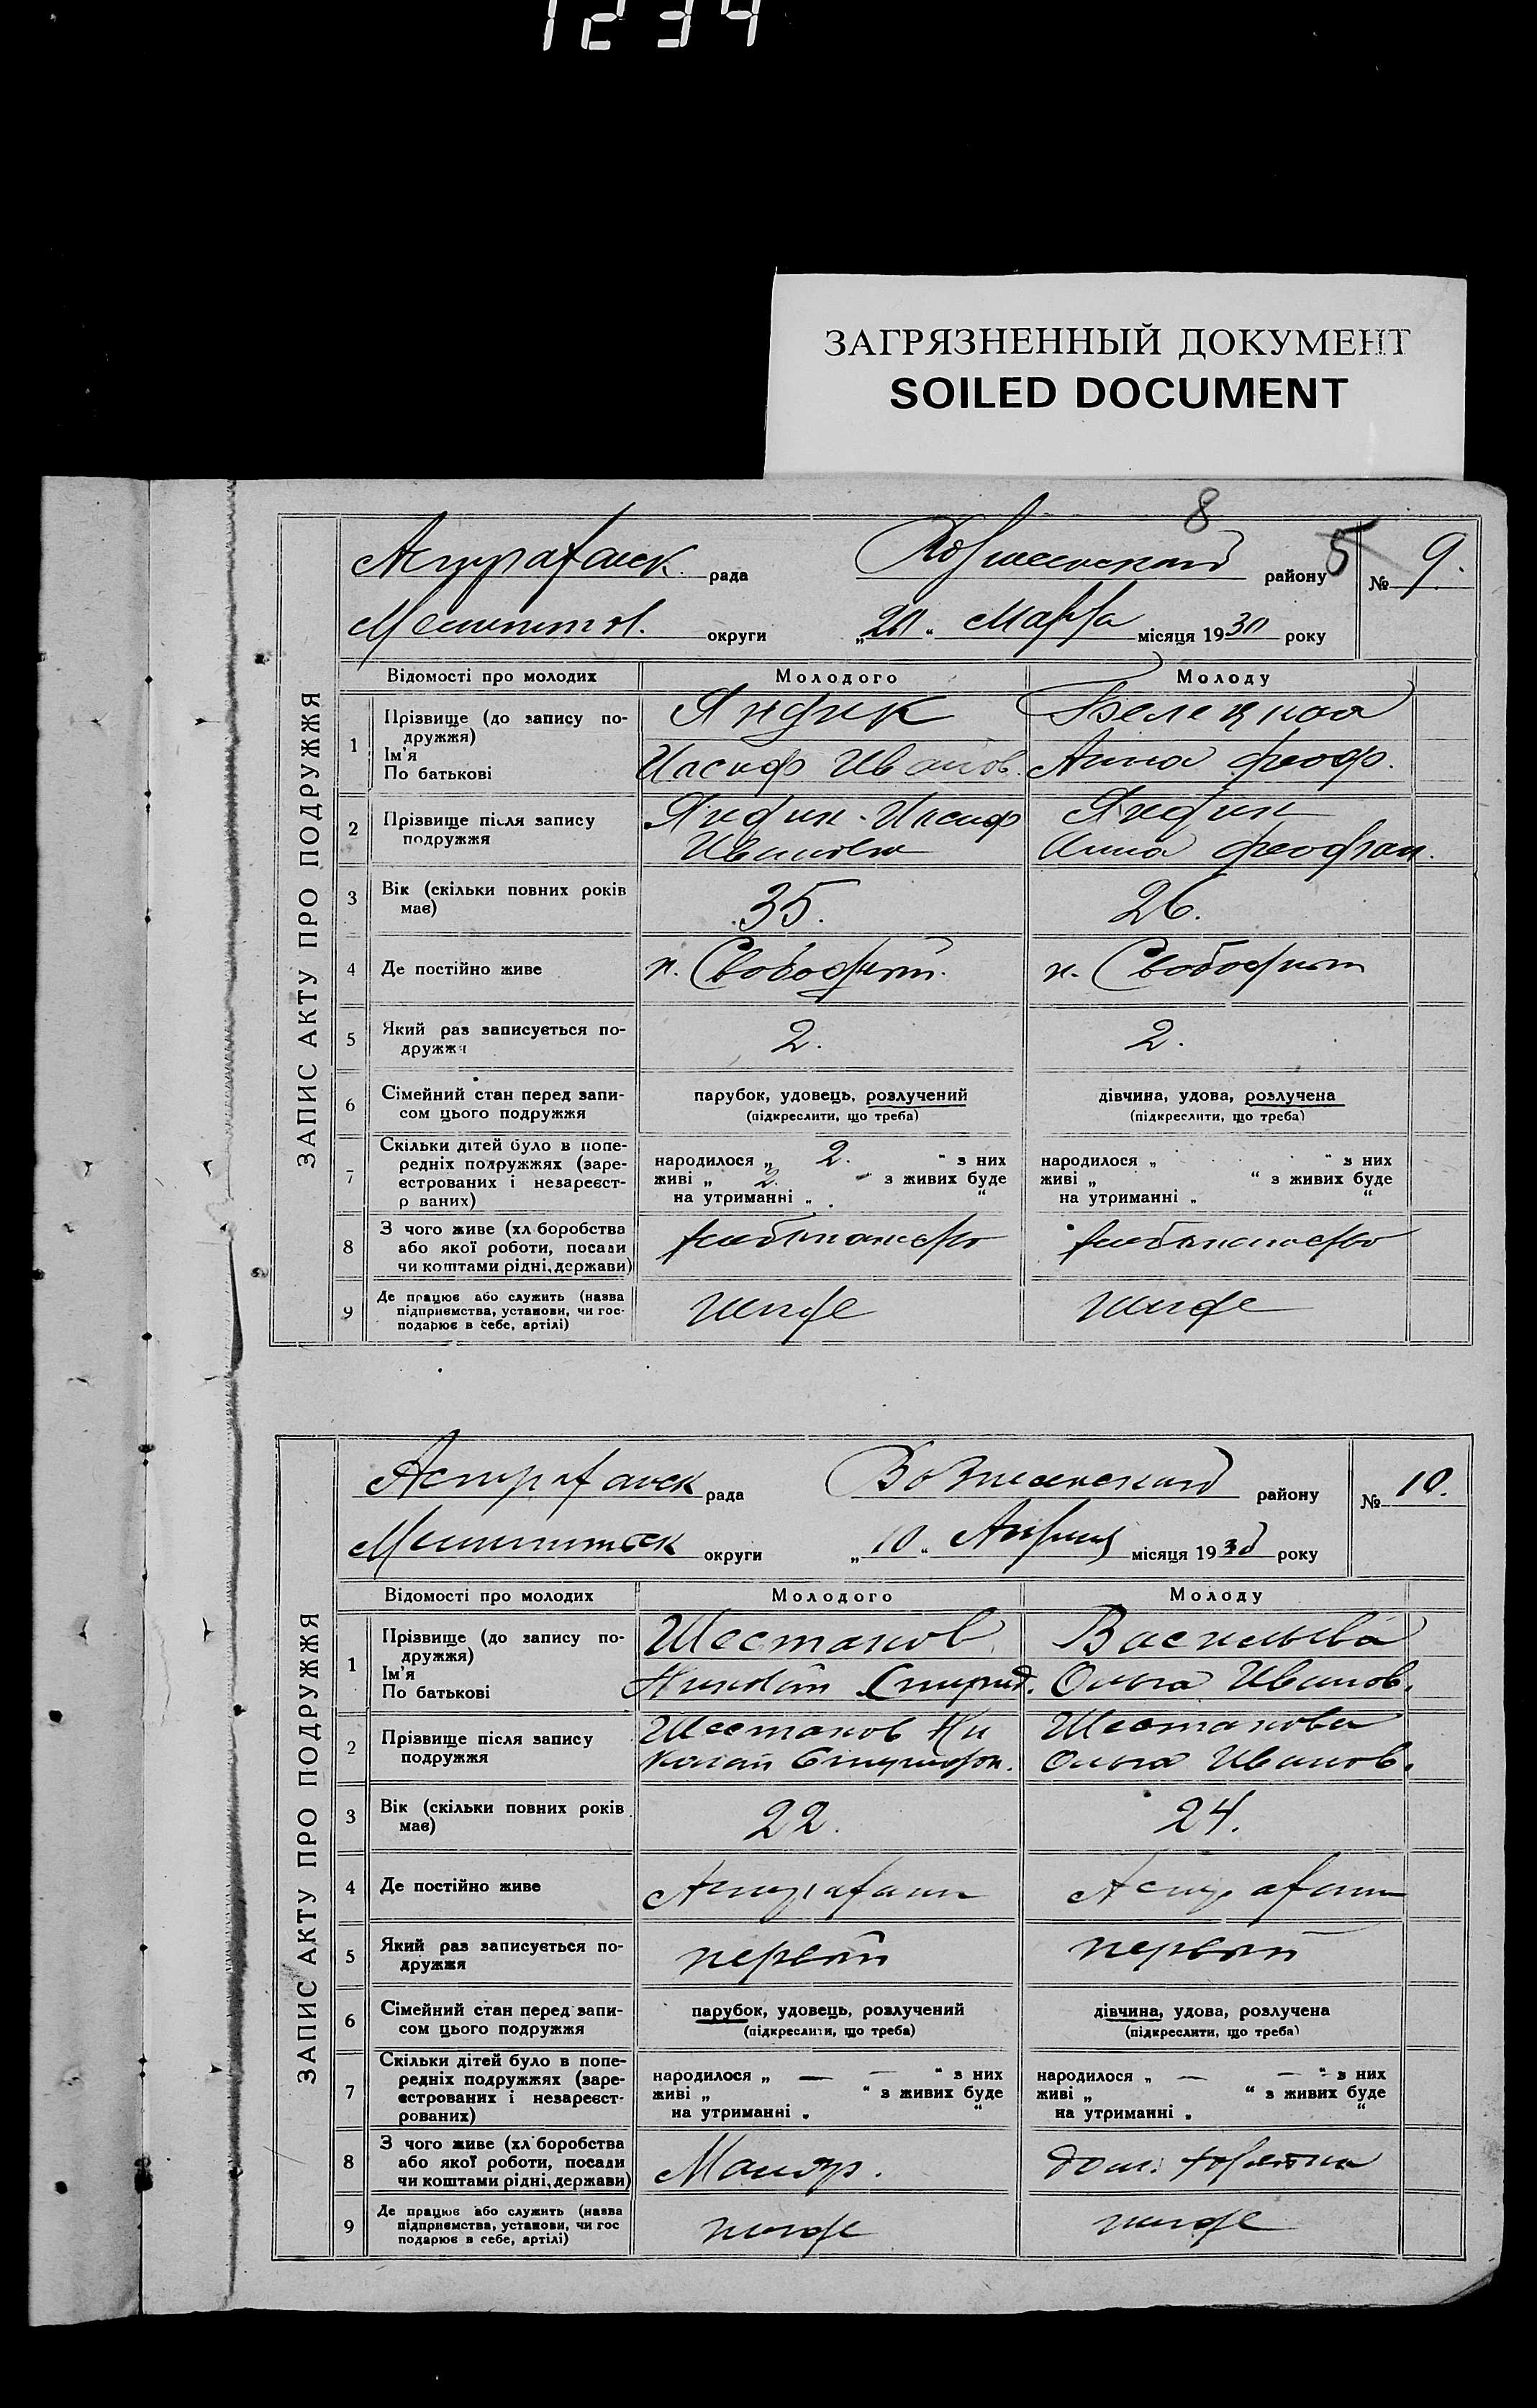 1234
ЗАГРЯЗНЕННЫЙ ДОКУМЕНТ
SOILED DOCUMENT
8
5
ЗАПИС АКТУ ПРО ПОДРУЖЖЯ
Астраханск рада району № 9.
Мелитопол. округи „20“ Марта місяця 1930 року
Відомості про молодих Молодого Молоду
1 Прізвище (до запису по-
дружжя)
Ім'я
По батькові
Яндик Белецкая
Иосиф Иванов. Анна Феоф.
2 Прізвище після запису
подружжя
Яндик Иосиф Яндик
Иванович Анна
3 Вік (скільки повних років
має)
35. 26.
4 Де постійно живе п. Свободный. п. Свободный
5 Який раз записується по-
дружжя
2. 2.
6 Сімейний стан перед запи-
сом цього подружжя
парубок, удовець, розлучений дівчина, удова, розлучена
(підкреслити, що треба) (підкреслити, що треба)
7 Скільки дітей було в попе-
редніх подружжях (заре-
єстрованих і незареєст-
р ваних)
народилося „ 2. “ з них народилося „ “ з них
живі „ 2. “ з живих буде живі „ “ з живих буде
на утриманні „ “ на утриманні „ “
8 З чого живе (хл боробства
або якої роботи, посади
чи коштами рідні, держави)
хлебопашество хлебопашество
9 Де працює або служить (назва
підприємства, установи, чи гос-
подарює в себе, артілі)
нигде нигде
ЗАПИС АКТУ ПРО ПОДРУЖЖЯ
Астраханск рада Вознесенский району № 10.
Мелитопольск округи „10“ Апреля місяця 1930 року
Відомості про молодих Молодого Молоду
1 Прізвище (до запису по-
дружжя)
Ім'я
По батькові
Шестаков Васильева
Николай Спирид. Ольга Иванов.
2 Прізвище після запису
подружжя
Шестаков Ни Шестакова
колай Спиридон. Ольга Иванов.
3 Вік (скільки повних років
має)
22. 24.
4 Де постійно живе Астрахани Астрахани
5 Який раз записується по-
дружжя
первый первый
6 Сімейний стан перед запи-
сом цього подружжя
парубок, удовець, розлучений дівчина, удова, розлучена
(підкреслити, що треба) (підкреслити, що треба)
7 Скільки дітей було в попе-
редніх подружжях (заре-
єстрованих і незареєст-
рованих)
народилося „ — — “ з них народилося „ — — “ з них
живі „ “ з живих буде живі „ “ з живих буде
на утриманні „ “ на утриманні „ “
8 З чого живе (хл боробства
або якої роботи, посади
чи коштами рідні, держави)
Маляр. дом. хозяйка
9 Де працює або служить (назва
підприємства, установи, чи гос
подарює в себе, артілі)
нигде нигде